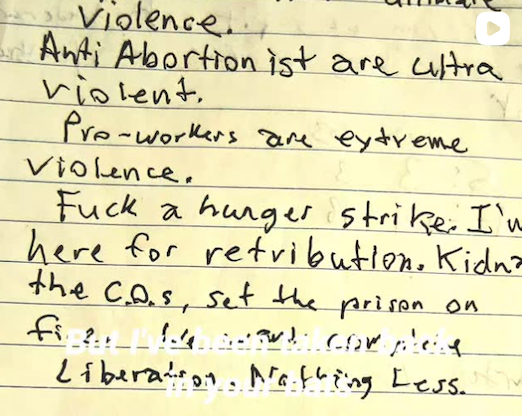 Violence.
Anti Abortionist are ultra
violent.
Pro-workers are extreme
violence.
Fuck a hunger strike. I'm
here for retribution. Kidna
the C.O.s, set the prison on
complete
Liberation Nothing Less.
But I've been taken back
in your